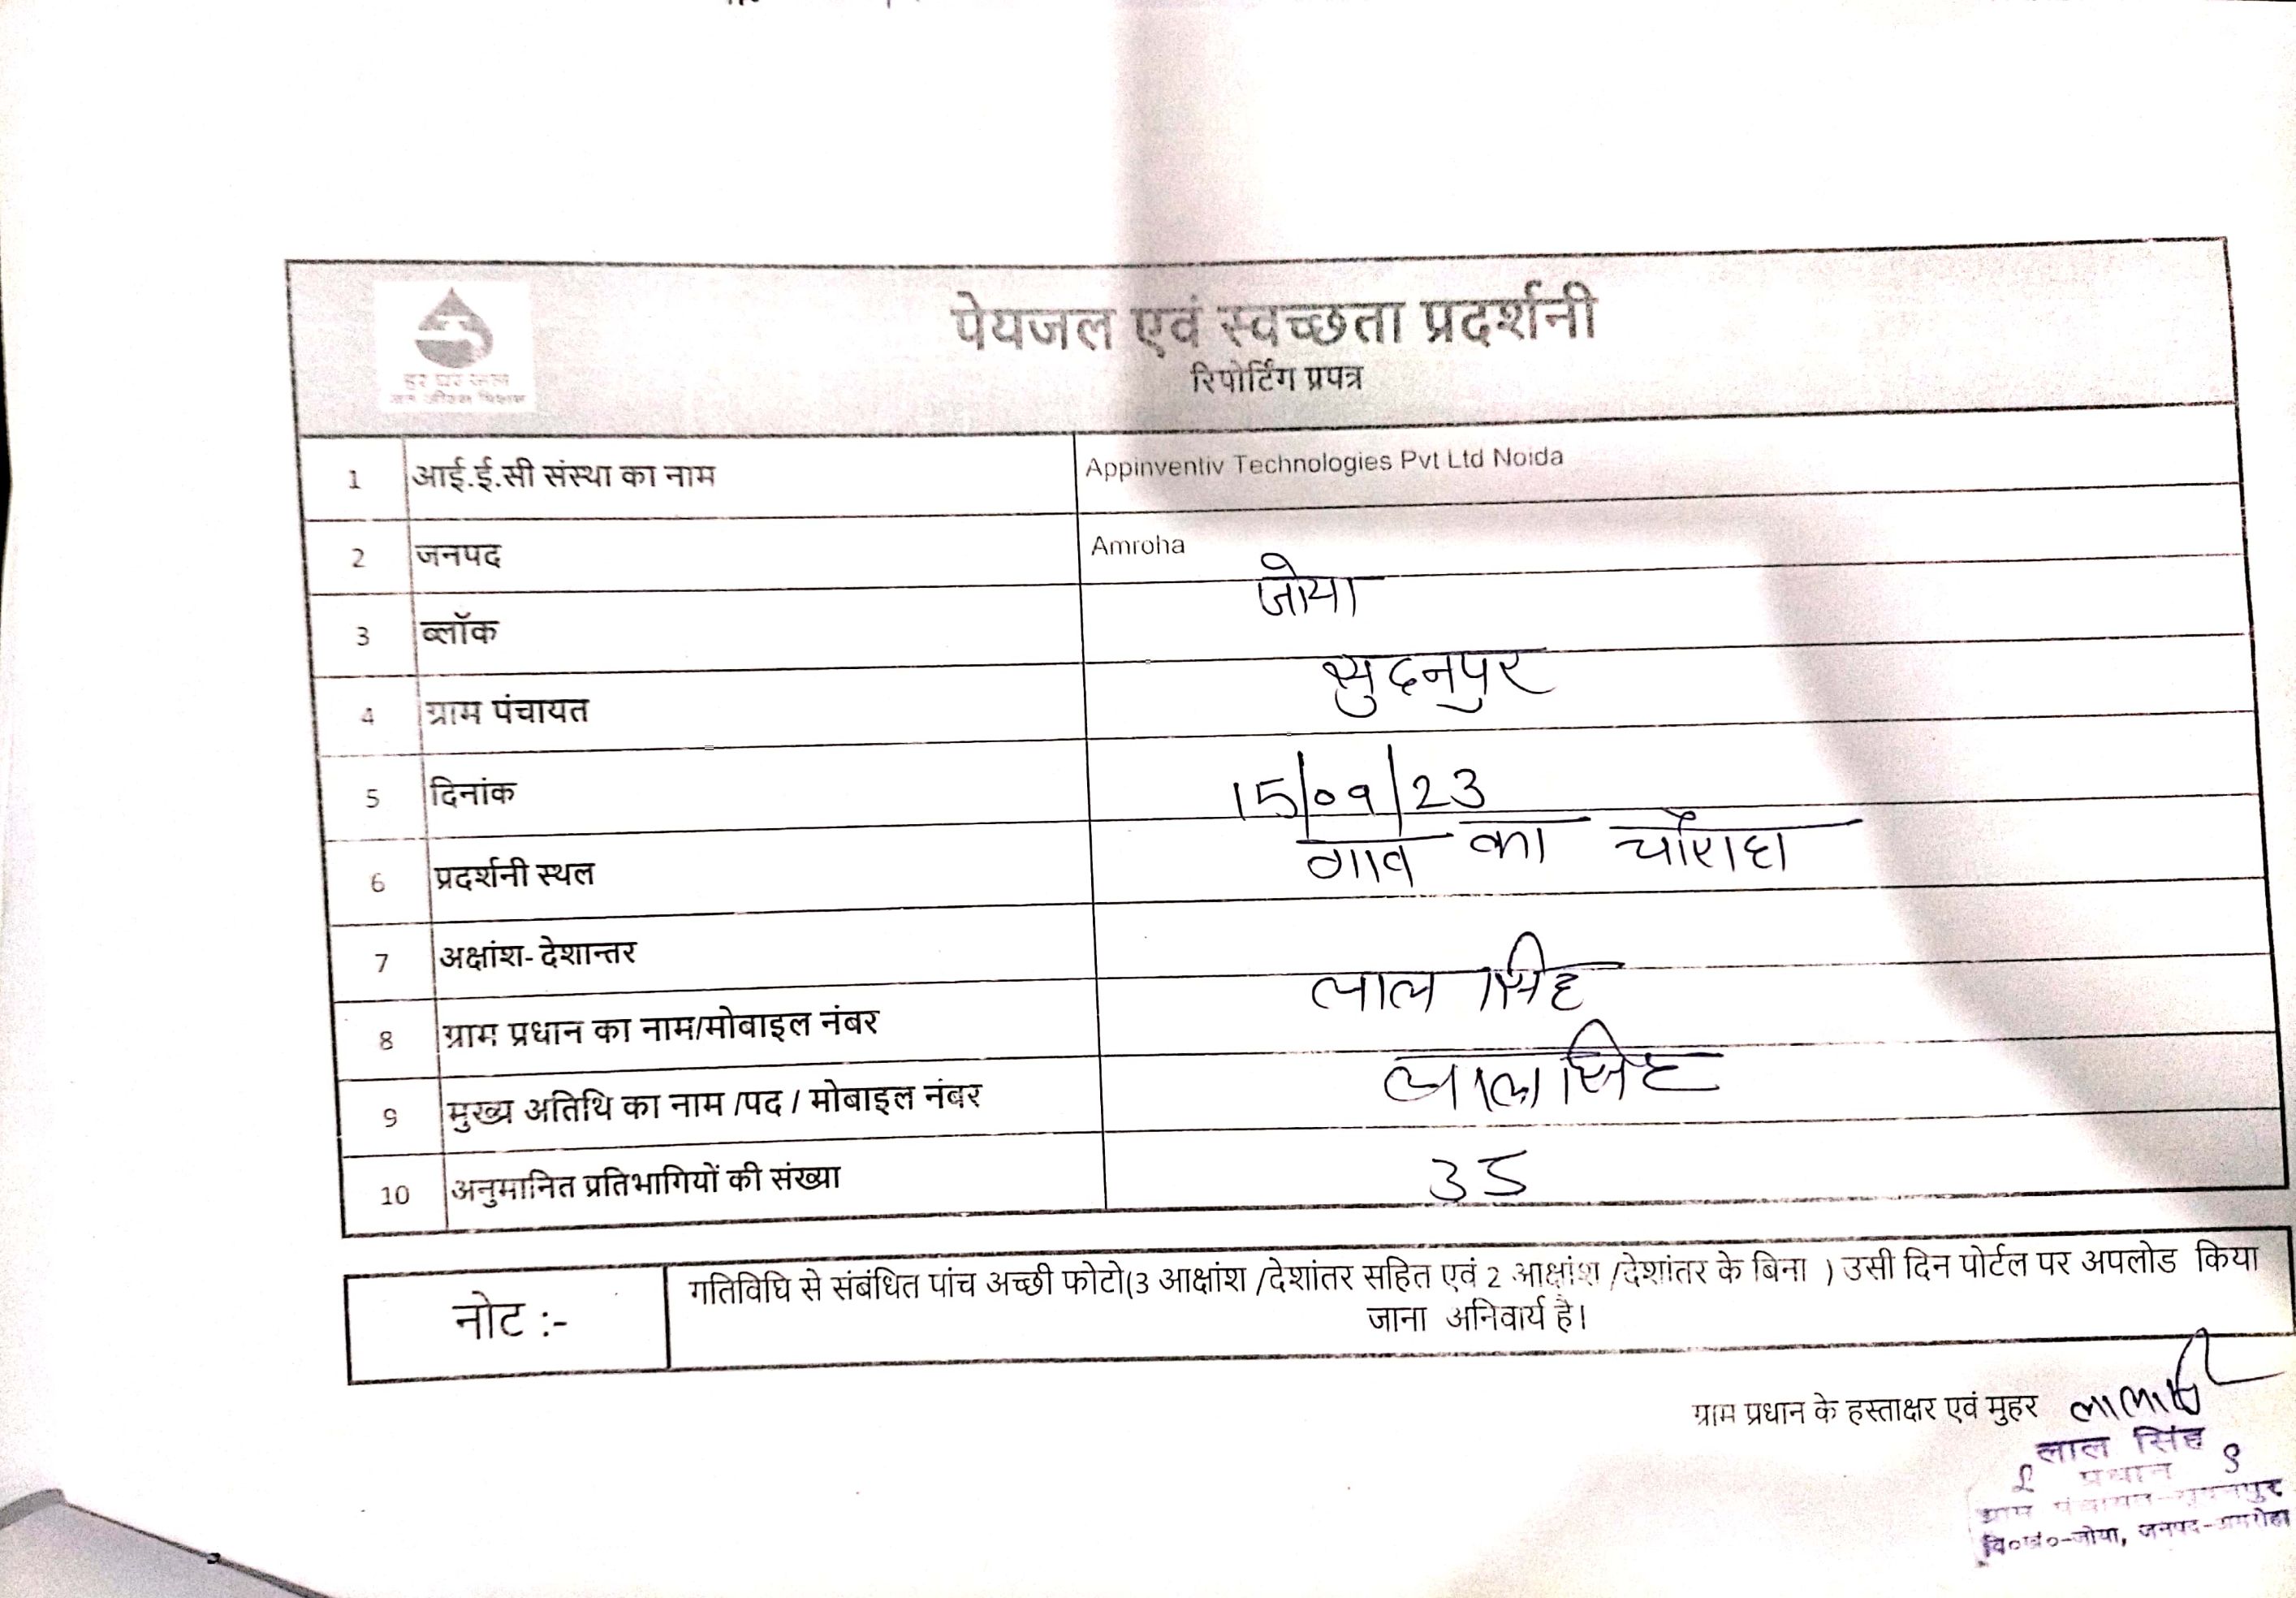 हर घर जल
जल जीवन मिशन
पेयजल एवं स्वच्छता प्रदर्शनी
रिपोर्टिंग प्रपत्र
1 आई.ई.सी संस्था का नाम Appinventiv Technologies Pvt Ltd Noida
2 जनपद Amroha
3 ब्लॉक जोया
4 ग्राम पंचायत
5 दिनांक 15/09/23
6 प्रदर्शनी स्थल गाव का चौराहा
7 अक्षांश- देशान्तर
8 ग्राम प्रधान का नाम/मोबाइल नंबर लाल सिंह
9 मुख्य अतिथि का नाम /पद / मोबाइल नंबर लाल सिंह
10 अनुमानित प्रतिभागियों की संख्या 35
नोट :- गतिविधि से संबंधित पांच अच्छी फोटो(3 आक्षांश /देशांतर सहित एवं 2 आक्षांश /देशांतर के बिना ) उसी दिन पोर्टल पर अपलोड किया
जाना अनिवार्य है।
ग्राम प्रधान के हस्ताक्षर एवं मुहर
लाल सिंह
प्रधान
ग्राम पंचायत-
वि०खं०-जोया, जनपद-अमरोहा